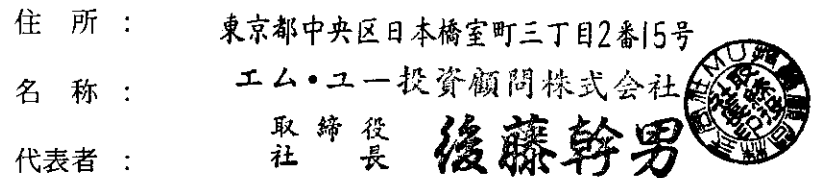 住 所 : 東京都中央区日本橋室町三丁目2番15号
名 称 : エム・ユー投資顧問株式会社
取締役
代表者 : 社 長 後藤幹男